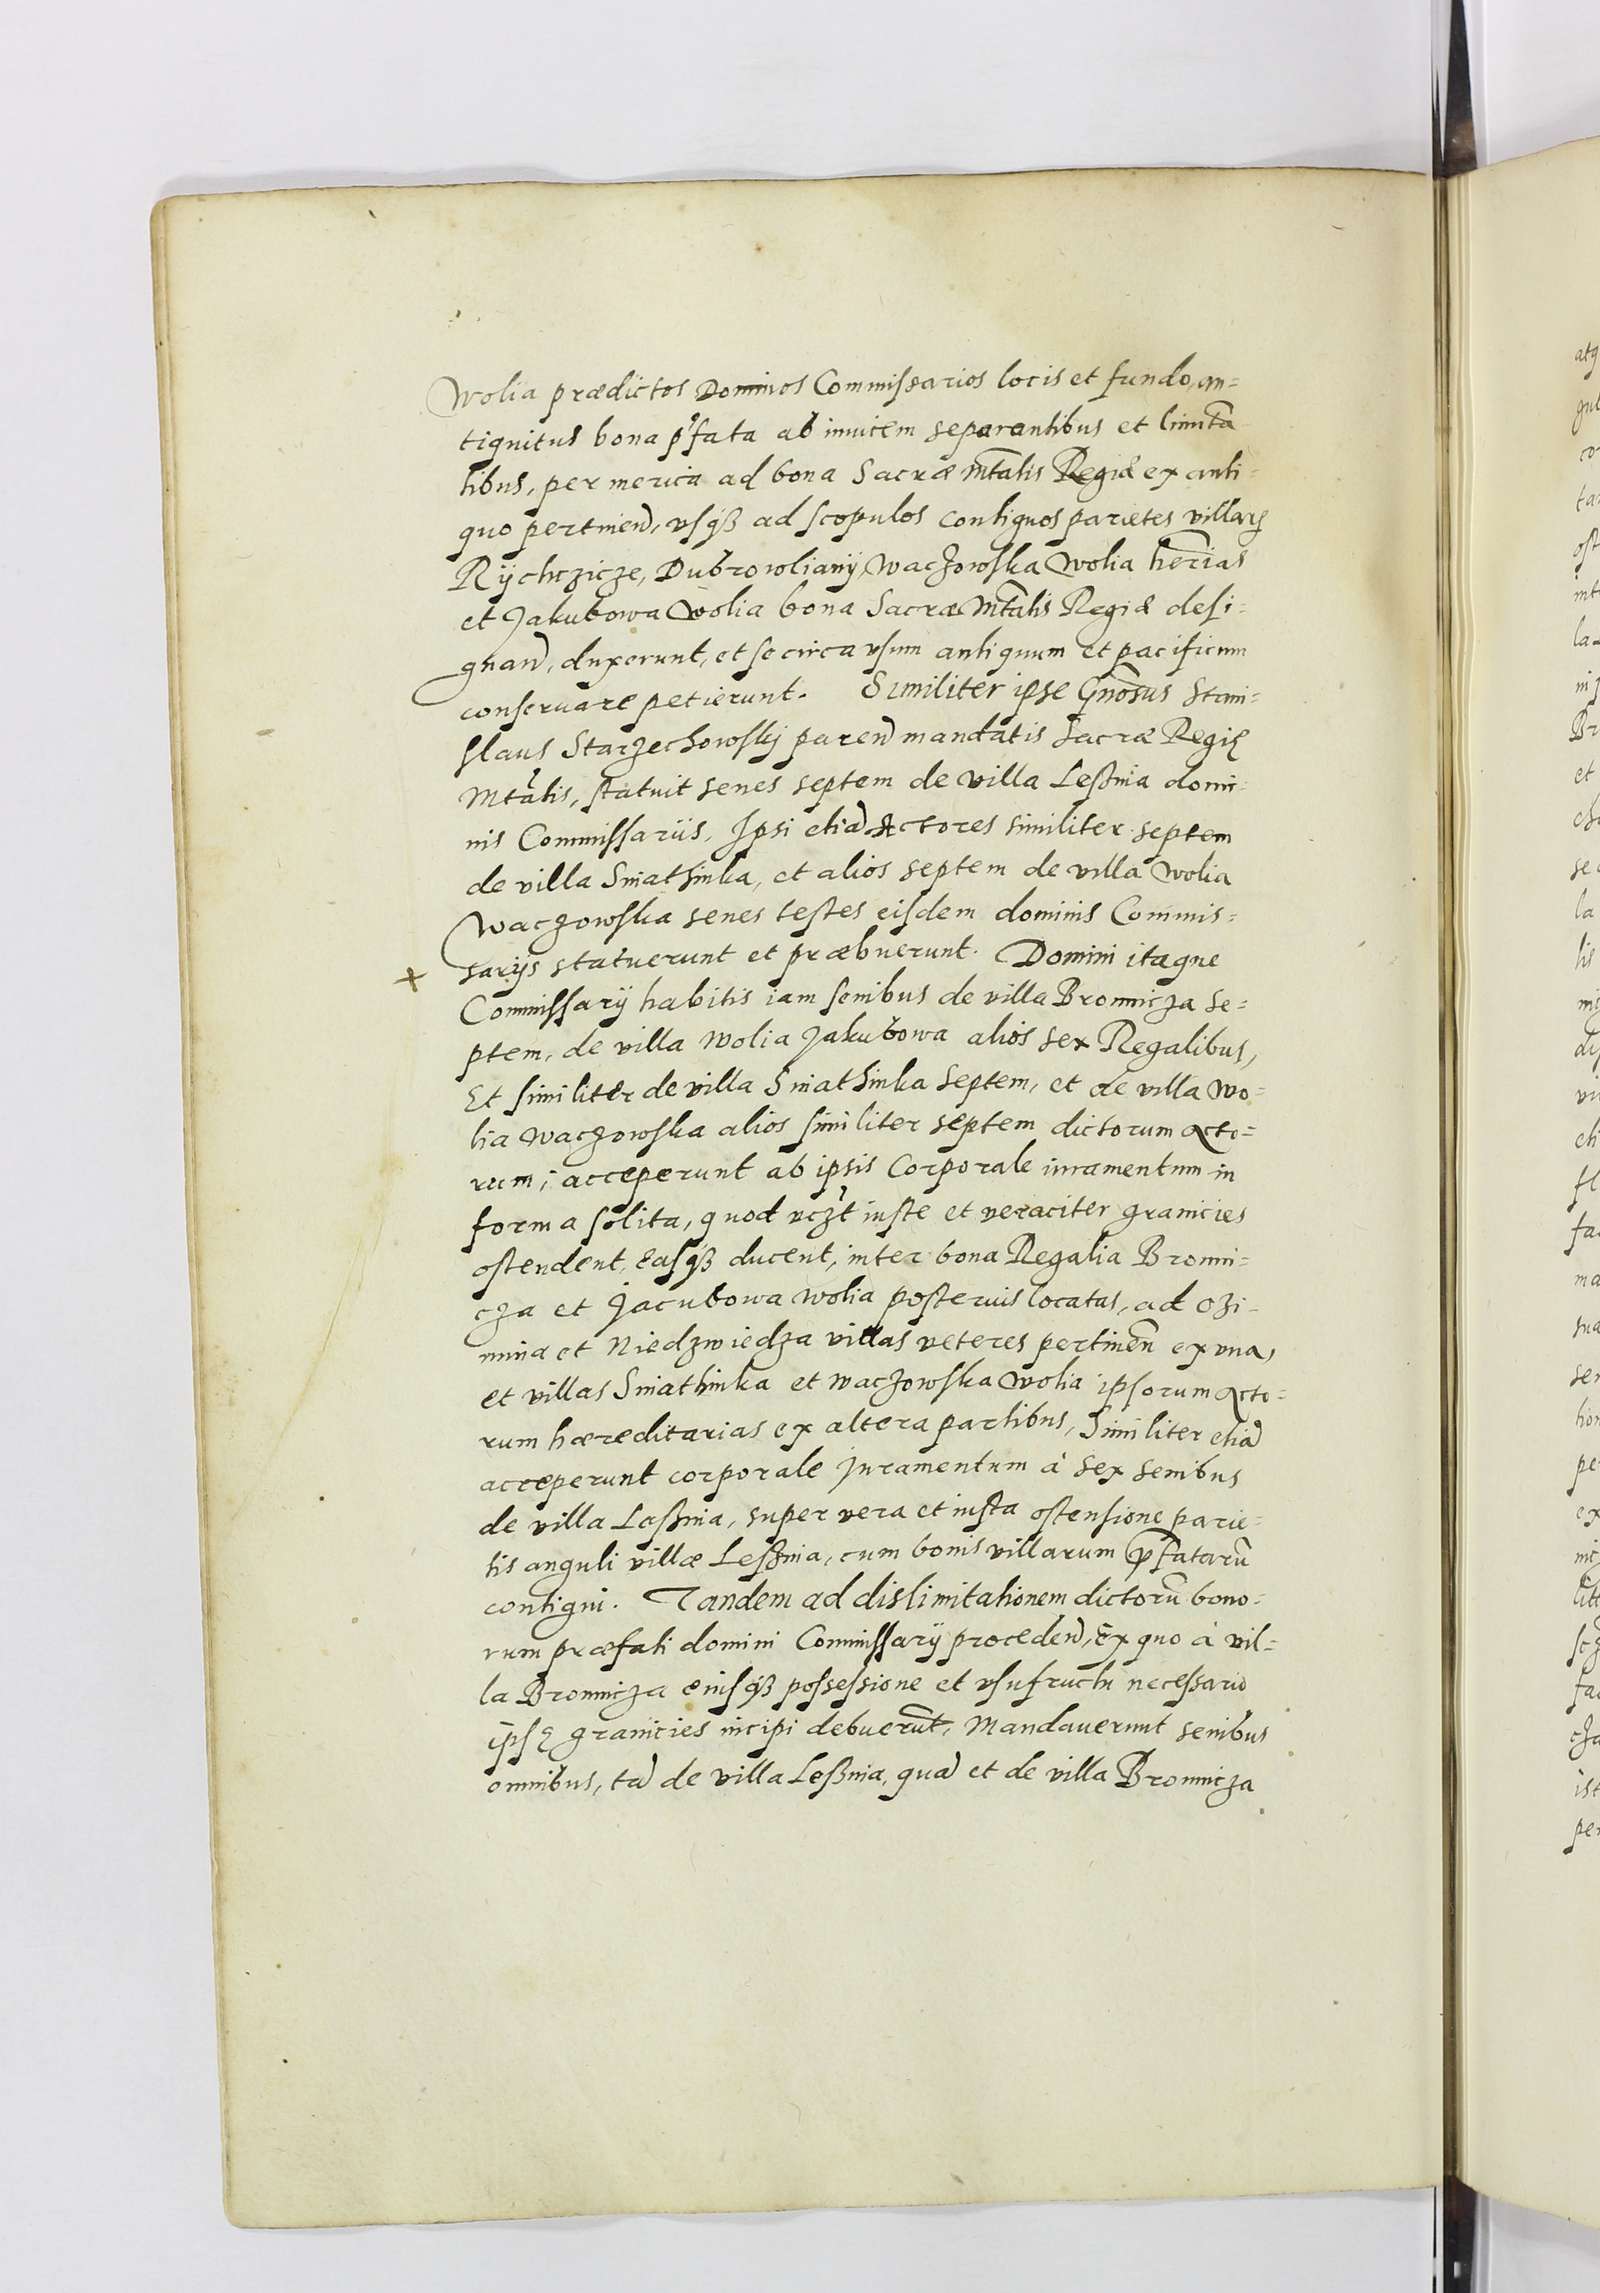 Wolia prædictos Dominos Commissarios locis et fundo, an=
tiquitus bona p̃fata ab inuicem separantibus et limitã
tibus, per merica ad bona Sacræ Mt̃atis Regiæ ex anti=
quo pertinen̄, vsq́ʒ ad scopulos contiguos parietes villarꝝ
Rÿchczicze, Dubrowlianÿ, Waczowska Wolia hæ̃rias
et Jakubowa Wolia bona Sacræ Mt̃atis Regiæ desi=
gnan̄, duxerunt, et se circa vsum antiquum et pacificum
conseruare petierunt. Similiter ipse Gñosus Stani=
slaus Starzechowskj paren̄ mandatis Sacræ Regię
Mt̃atis, statuit senes septem de villa Leßnia domi=
nis Commissariis, Ipsi etiã Actores similiter septem
de villa Sniathinka, et alios septem de villa Wolia
Waczowska senes testes eisdem dominis Commis=
sarijs statuerunt et præbuerunt. Domini itaque
Commissarij habitis iam senibus de villa Bronnicza se=
ptem, de villa Wolia Jakubowa alios sex Regalibus,
Et similiter de villa Sniathinka septem, et de villa Wo=
lia Waczowska alios similiter septem dictorum Acto=
rum, acceperunt ab ipsis Corporale iuramentum in
forma solita, quod vcz̃t iuste et veraciter granicies
ostendent, easq́ʒ ducent, inter bona Regalia Bronni=
cza et Jacubowa Wolia posterius locatas, ad Ozi=
mina et Niedzwiedza villas veteres pertineñ ex vna,
et villas Sniathinka et Waczowska Wolia ipsorum Acto=
rum hæreditarias ex altera partibus, Similiter etiã
acceperunt corporale Juramentum à sex senibus
de villa Leßnia, super vera et iusta ostensione parie=
tis anguli villæ Leßnia, cum bonis villarum p̃fatarũ
contigui. Tandem ad dislimitationem dictorũ bono=
rum præfati domini Commissarij proceden̄, Ex quo à vil=
la Bronnicza eiusq́ʒ possessione et vsufructu necessario
ipsę granicies incipi debuerũt, Mandauerunt senibus
omnibus, tã de villa Leßnia, quã et de villa Bronnicza